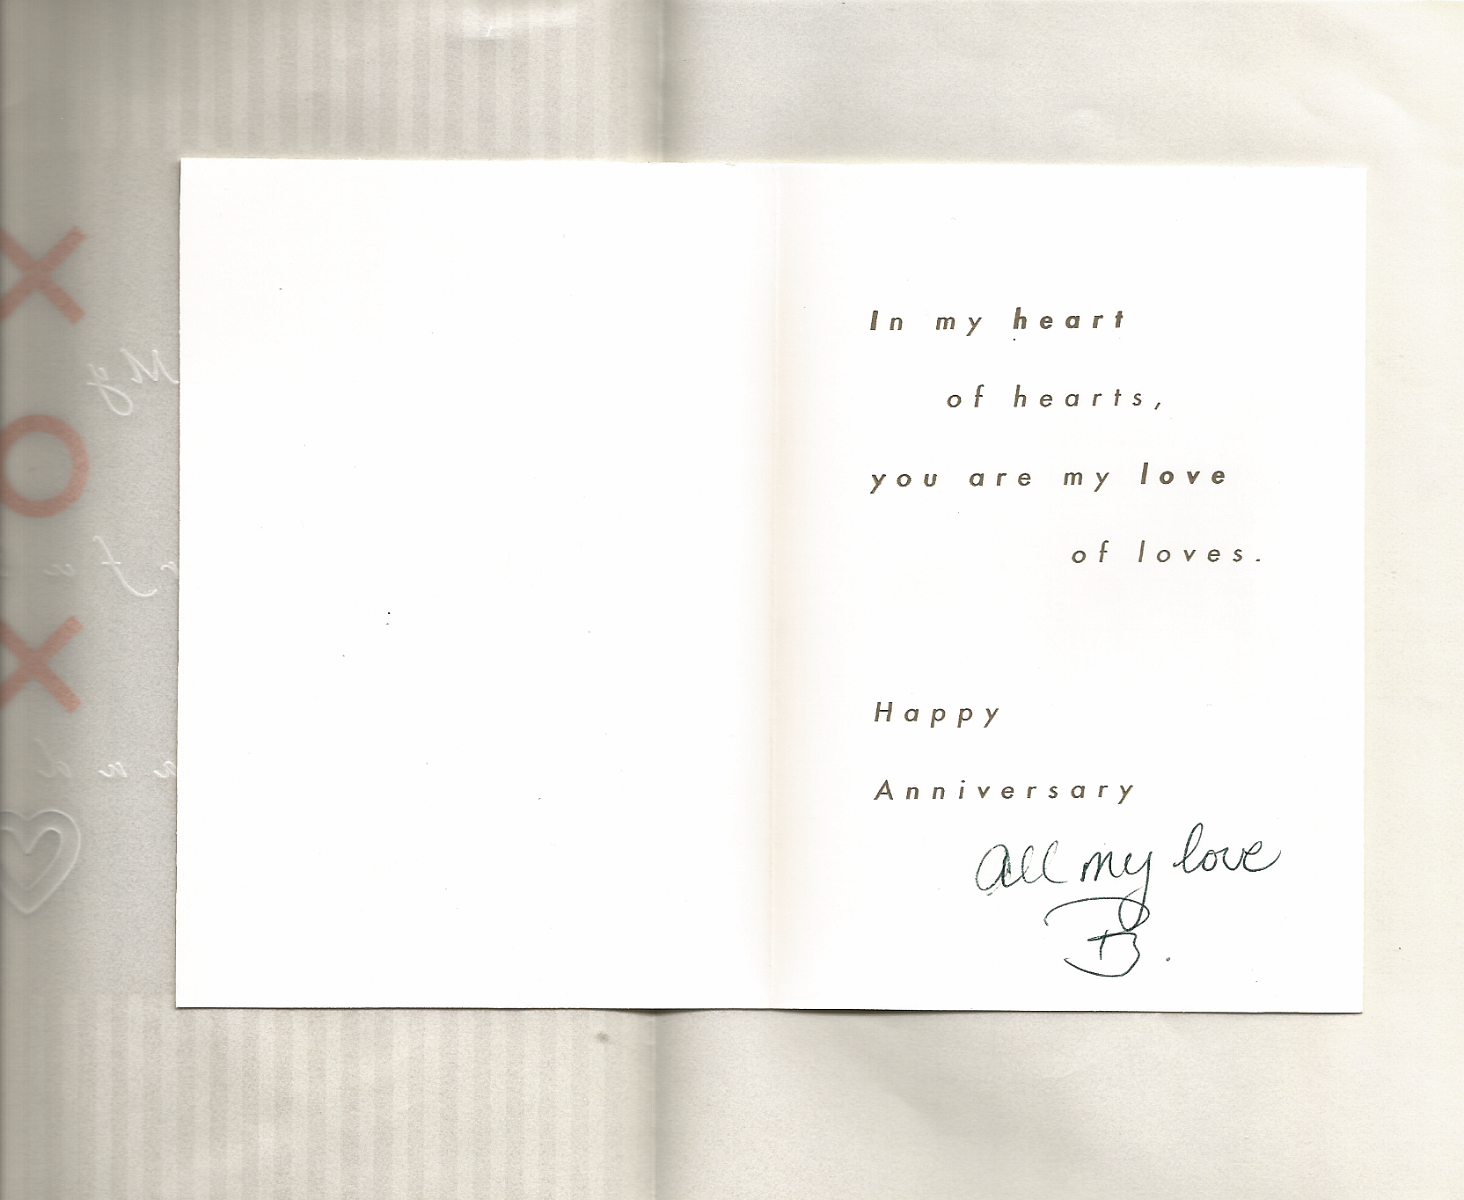 X
My
O
X
and
In my heart
of hearts,
you are my love
of loves.
Happy
Anniversary
all my love
B.